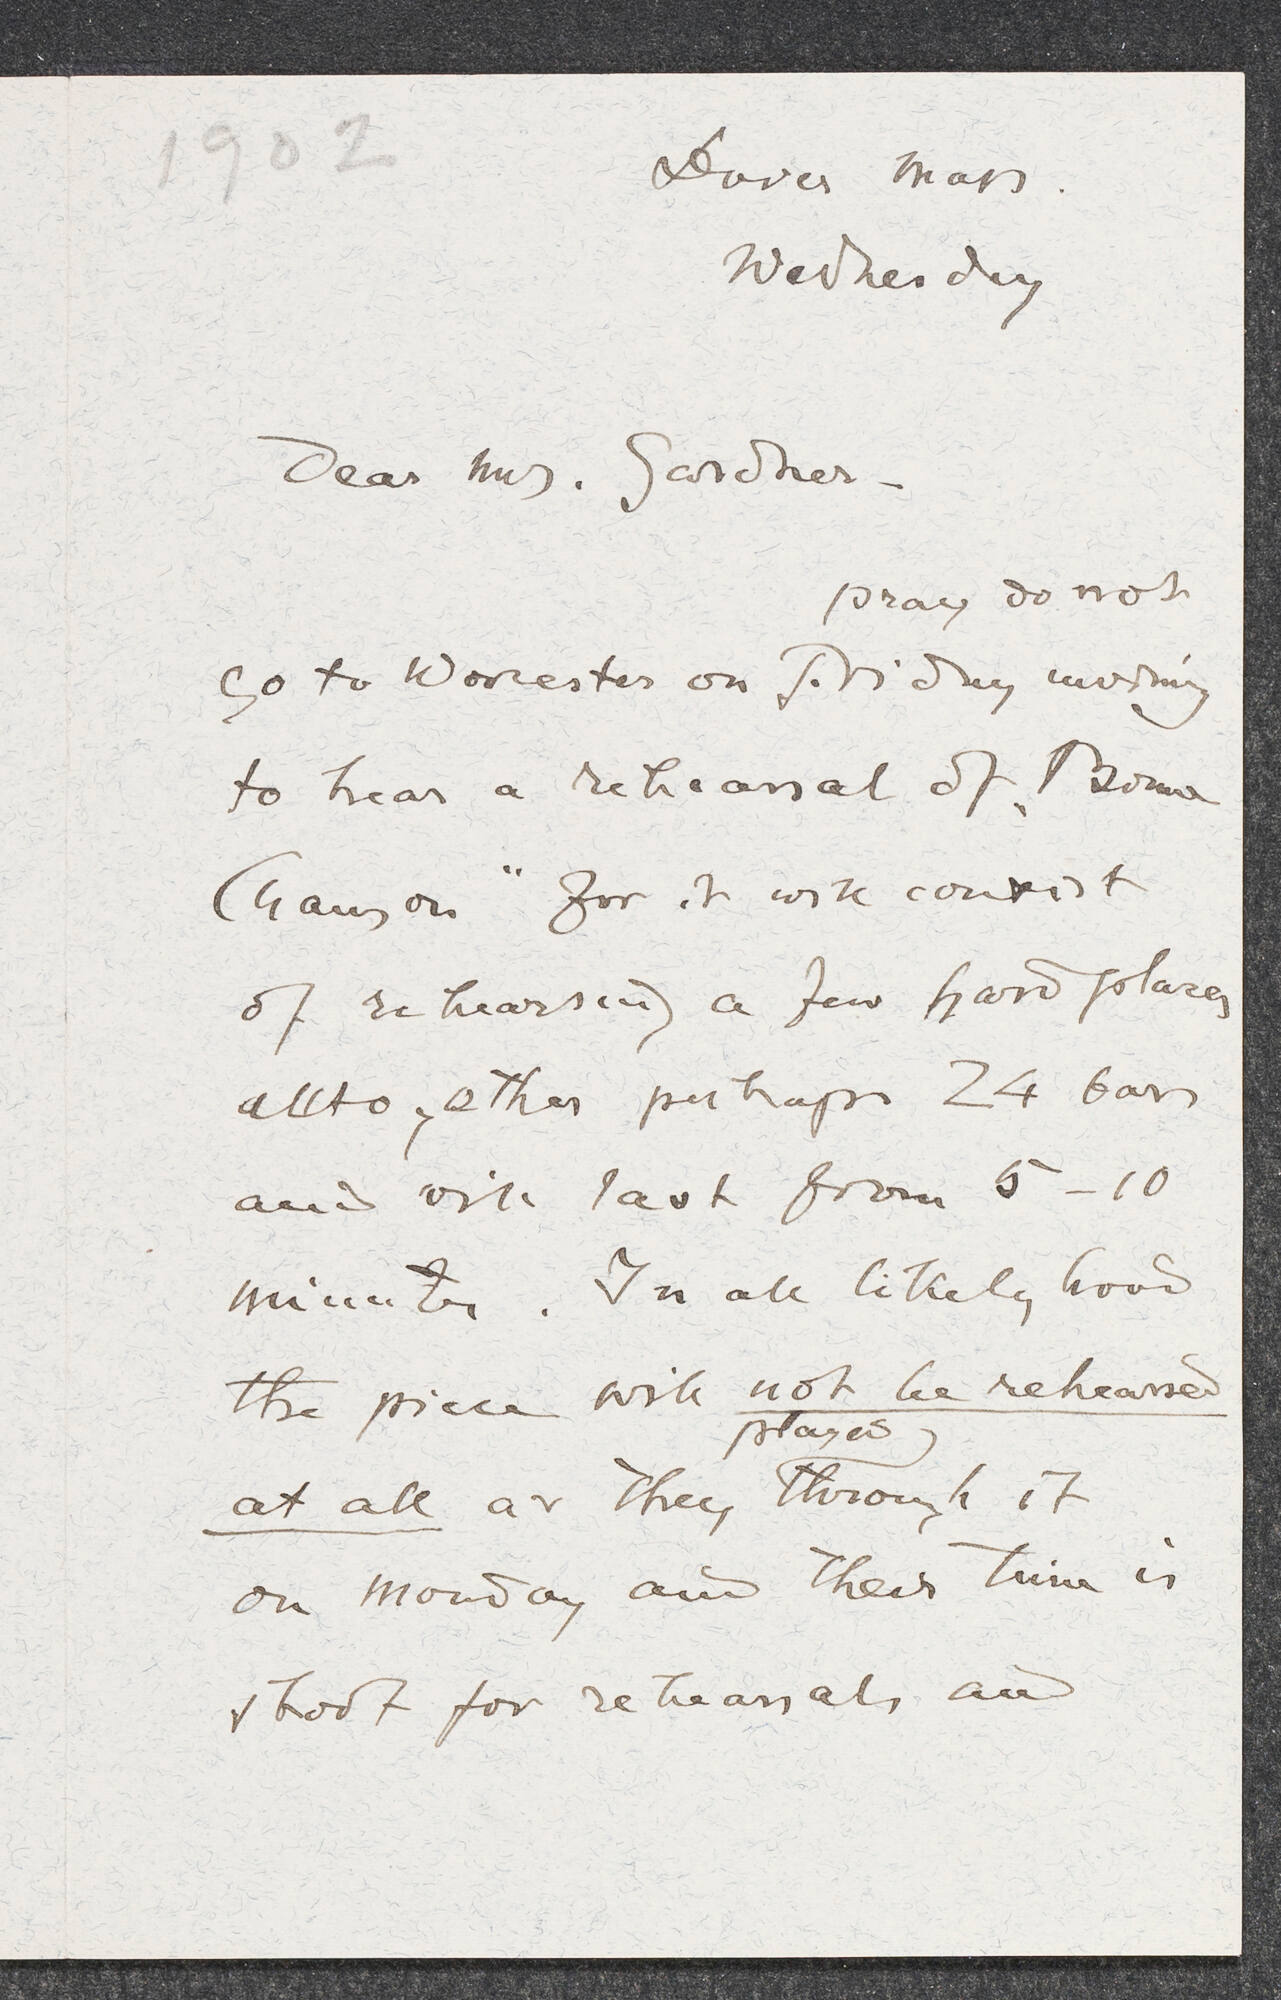 1902
Dover Mass.
Wednesday
Dear Mrs. Gardner -
pray do not
go to Worcester on Friday morning
to hear a rehearsal of „Bonne
Chanson" for it will consist
of rehearsing a few hard places
alltogether perhaps 24 bars
and will last from 5-10
minutes. In all likelyhood
the piece will not be rehearsed
played
at all as they through it
on Monday and their time is
short for rehearsals and